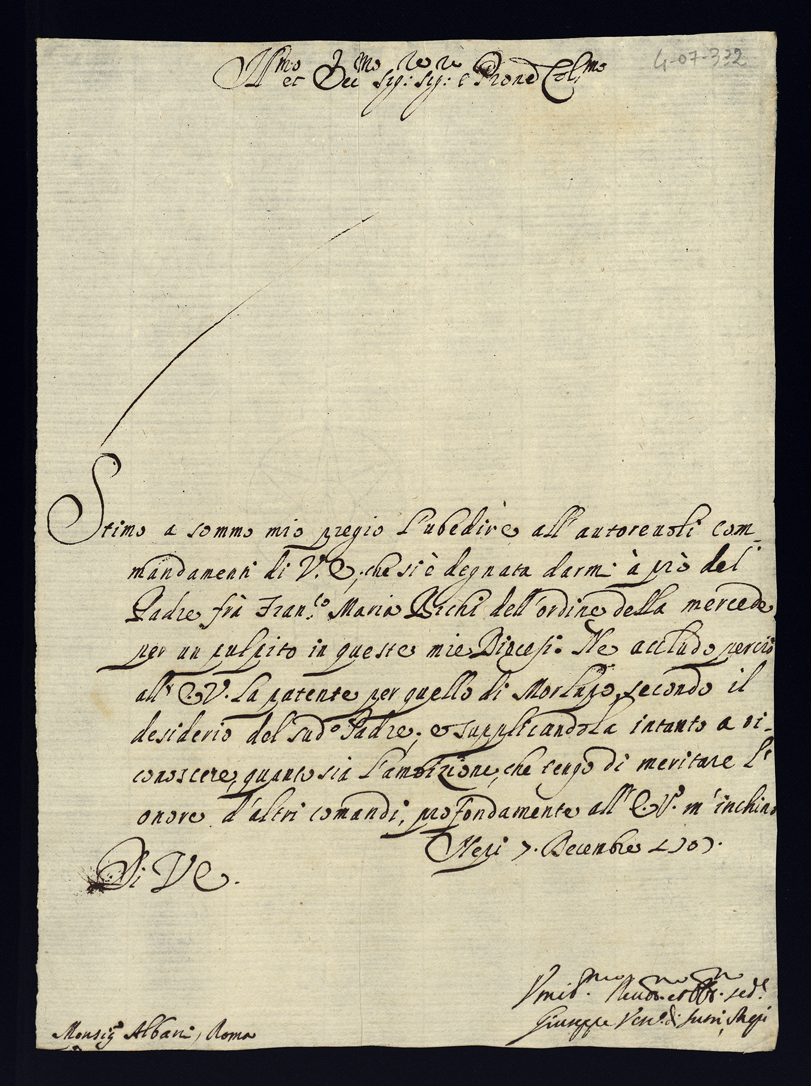 Ill.mo et Ecc.mo Sig.r Sig.r e Prone Col.mo
4-07-332
Stimo a sommo mio pregio l'ubedire all'autoreuoli com-
mandamenti di V.E., che si è degnata darmi à prò del
Padre frà Fran.co Maria Bichi dell'ordine della mercede
per un pulpito in queste mie Diocesi. Ne accludo perciò
all'E.V. la patente per quello di Morlupo, secondo il
desiderio del sud.o Padre; e supplicandola intanto a ri-
conoscere, quanto sia l'ambizione, che tengo di meritare l'
onore d'altri comandi, profondamente all'E.V. m'inchino
Nepi 7. Decembre 1707.
Di VE.
Vmil.mo Seru.
Giuseppe Vesc.o di Sutri, e Nepi
Monsig.r Albani, Roma